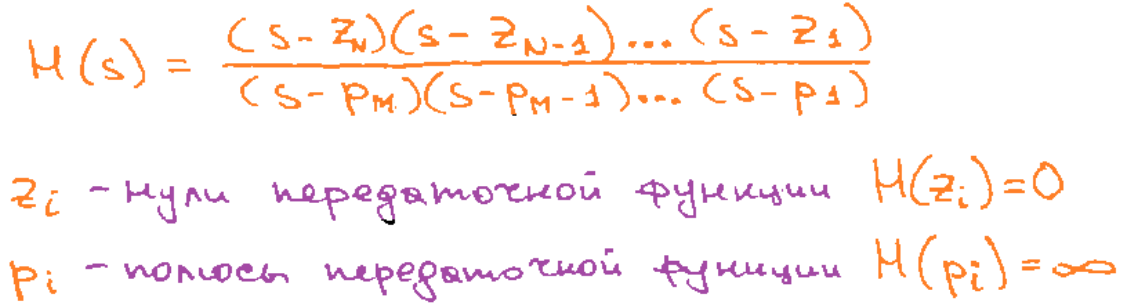 H(s) = (s - z_N)(s - z_{N-1})... (s - z_1) / (s - p_M)(s - p_{M-1})... (s - p_1)
z_i - нули передаточной функции H(z_i)=0
p_i - полюсы передаточной функции H(p_i)=∞